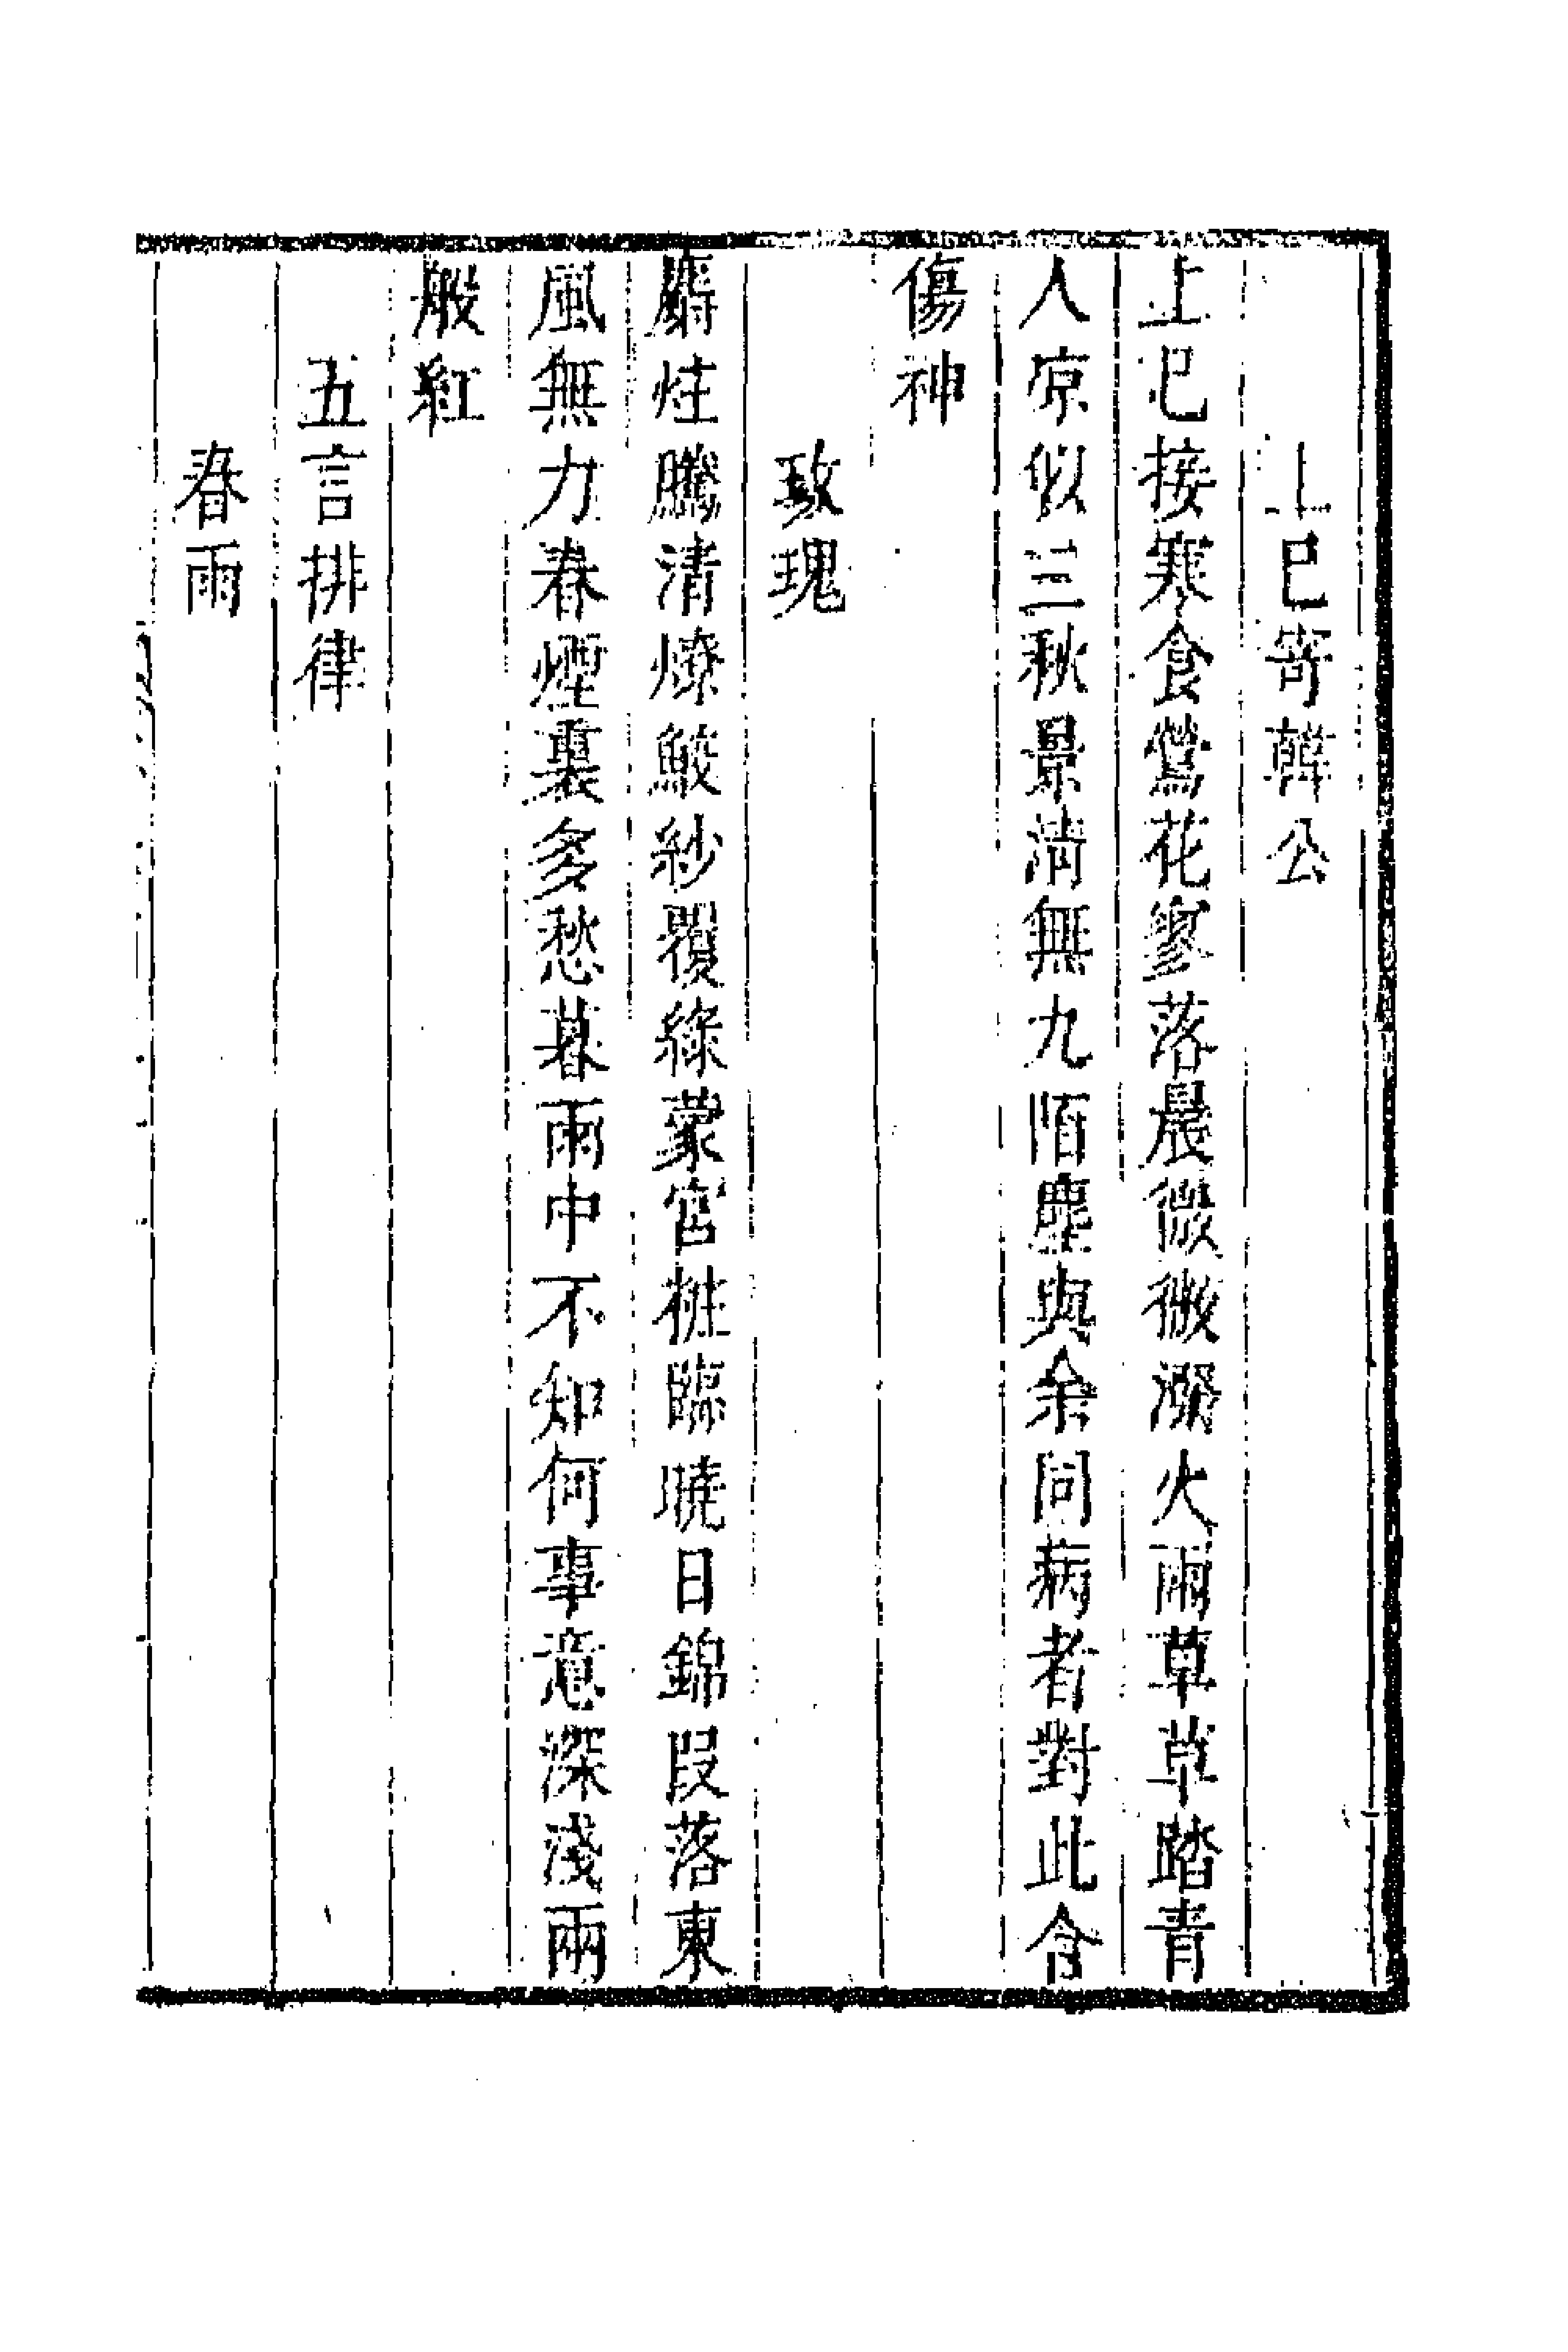 上巳寄韓公
上巳接寒食鶯花寥落晨微微潑火雨草草踏青
人凉似三秋景清無九陌塵與余同病者對此合
傷神
玫瑰
麝炷騰清燎鮫紗覆綠蒙宮粧臨曉日錦段落東
風無力春煙裏多愁暮雨中不知何事意深淺兩
般紅
五言排律
春雨